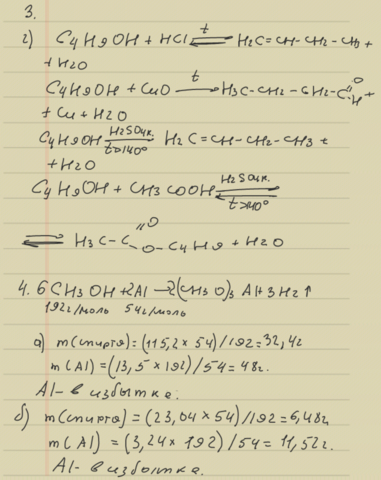 3.
г) C4H9OH + HCl ⇌ t H2C=CH-CH2-CH3 +
+ H2O
C4H9OH + CuO → t H3C-CH2-CH2-C=O-H +
+ Cu + H2O
C4H9OH ⇌ H2SO4к. t>140° H2C=CH-CH2-CH3 +
+ H2O
C4H9OH + CH3COOH ⇌ H2SO4к. t>40°
⇌ H3C-C=O-O-C4H9 + H2O
4. 6CH3OH + 2Al → 2(CH3O)3Al + 3H2↑
192г/моль 54г/моль
а) m(спирта) = (115,2 × 54)/192 = 32,4г
m(Al) = (13,5 × 192)/54 = 48г.
Al - в избытке.
б) m(спирта) = (23,04 × 54)/192 = 6,48г
m(Al) = (3,24 × 192)/54 = 11,52г.
Al - в избытке.